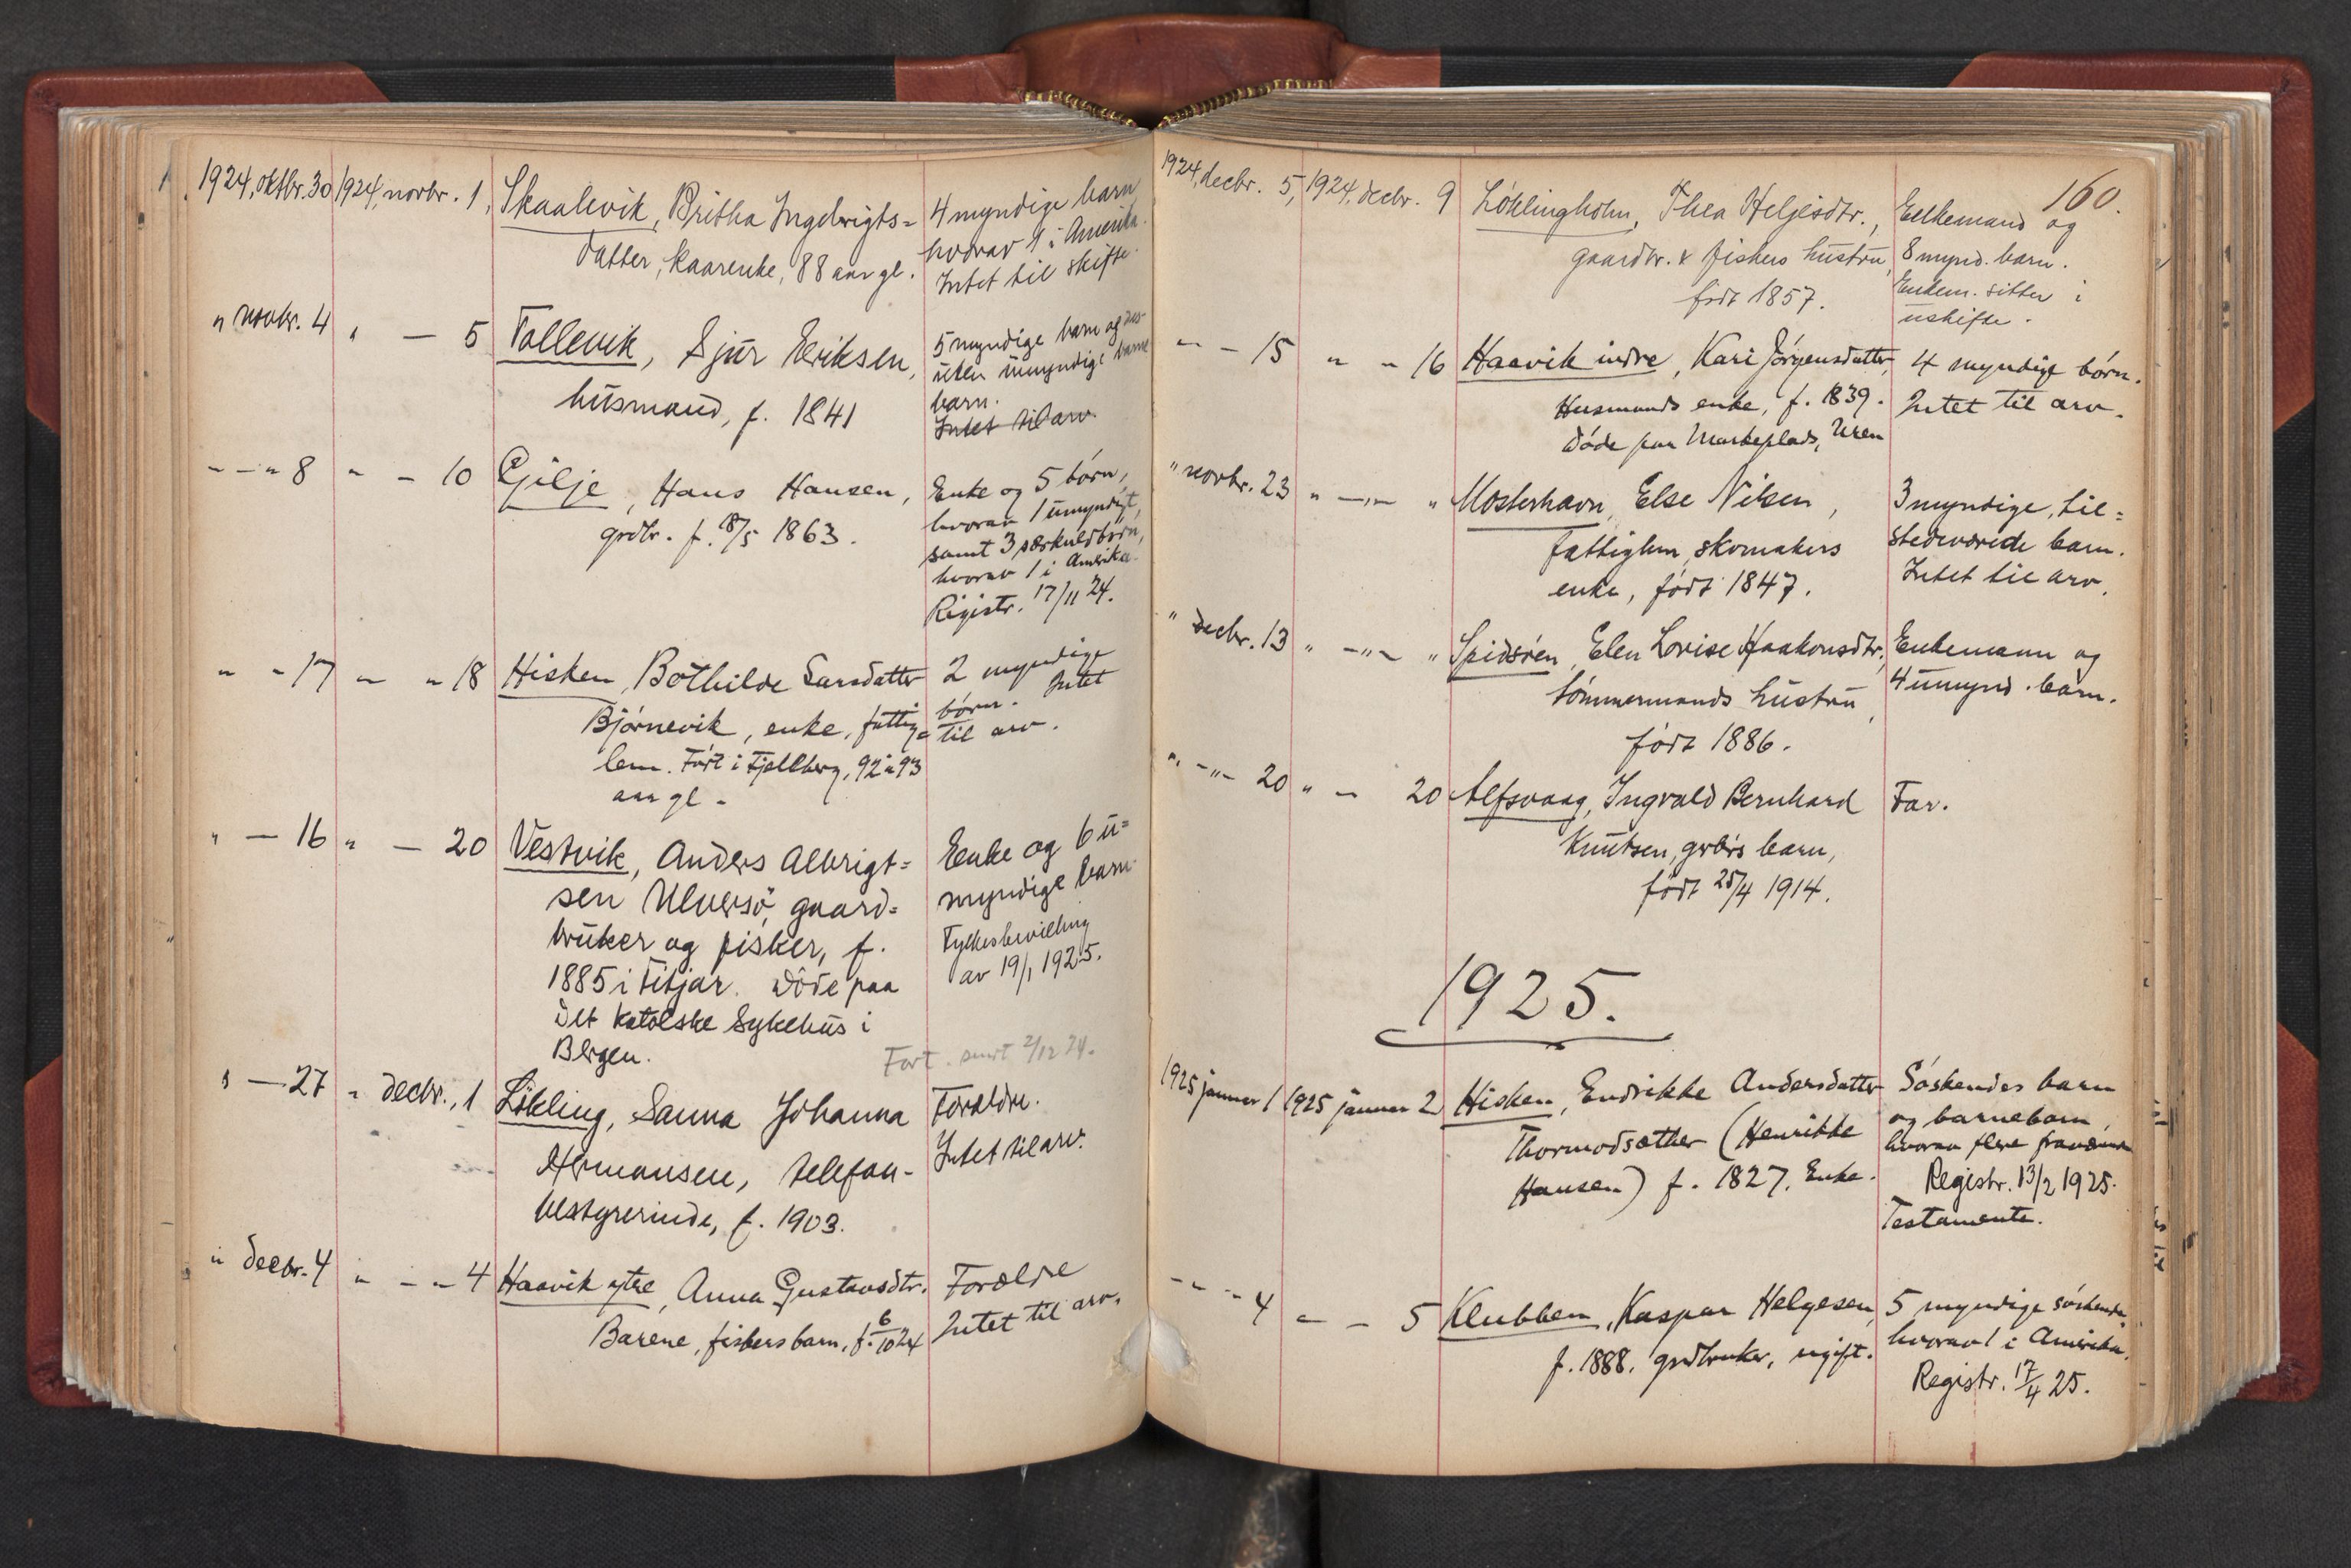 1924, oktbr. 30 1924, novbr. 1, Skaalevik, Britha Ingebrigts= 4 myndige barn
datter, kaarenke, 88 aar gl. hvorav 1 i Amerika.
Intet til skifte.
" novbr. 4 " — 5 Tollevik, Sjur Eriksen, 5 myndige barn og des-
uten umyndige barne
husmand, f. 1841 barn.
Intet til arv.
" — " 8 " — 10 Gjilje, Hans Hansen, Enke og 5 börn,
hvorav 1 umyndigt,
grdbr. f. 18/5 1863. samt 3 særkuldbörn,
hvorav 1 i Amerika.
Registr. 17/11 24.
" " 17 " " 18 Hisken, Bothilde Larsdatter 2 myndige
Björnevik, enke, fattig= börn. Intet
til arv.
lem. Født i Fjellberg, 92 a 93
aar gl.
" — 16 " — 20 Vestvik, Anders Albrigt= Enke og 6 u=
sen Ulversö, gaard= myndige barn
bruker og fisker, f. Fylkesbevilling
1885 i Fitjar. Döde paa av 19/1 1925.
det katolske Sykehus i
Bergen.
Fort. sendt 2/12 24.
" — 27 " decbr., 1 Lökling, Sanna Johanna Forældre.
Hermansen, telefon- Intet til arv.
bestyrerinde, f. 1903.
" decbr. 4 " — " 4 Haavik ytre, Anna Gustavsdtr. Forældre
Barene, fiskers barn, f. 6/10 24 Intet til arv.
160.
1924, decbr. 5, 1924, decbr. 9 Löklingholm, Thea Helgesdtr., Enkemand og
gaardbr. & fiskers hustru, 8 mynd. barn.
født 1857. Enkem. sitter i
uskifte.
" — 15 " " 16 Haavik indre, Kari Jörgensdatter, 4 myndige börn.
Husmands enke, f. 1839. Intet til arv.
Döde paa Markeplads, Uren
" novbr. 23 " — " — " Mosterhavn, Else Nilsen, 3 myndige, til=
fattiglem, skomakers stedeværende barn.
enke, født 1847. Intet til arv.
" decbr. 13 " — " — " Spidsöen, Elen Lovise Haakonsdtr. Enkemann og
tömmermands hustru, 4 umynd. barn.
født 1886.
" — " — 20 " — 20 Alfsvaag, Ingvald Bernhard Far.
Knutsen, grdbr's barn,
født 25/4 1914.
1925.
1925 januar 1 1925 januar 2 Hisken, Endrikke Andersdatter Söskendes barn
og barnebarn,
Thormodsæther (Henrikke hvorav flere fraværende
Hansen) f. 1827, Enke. Registr. 13/2 1925.
Testamente.
" — " 4 " — 5 Klubben, Kaspar Helgesen, 5 myndige söskende,
f. 1888. grdbruker, ugift. hvorav 1 i Amerika.
Registr. 17/4 25.